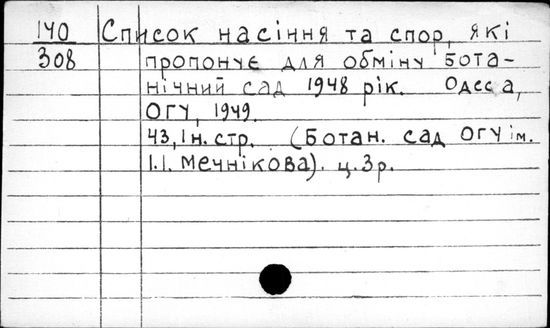 140 Список насіння та спор, які
308 пропонує для обміну Бота-
нічний сад 1948 рік. Одесса,
ОГУ, 1949.
43, 1 н. стр. (Ботан. сад ОГУ ім.
І.І. Мечнікова). ц. 3 р.